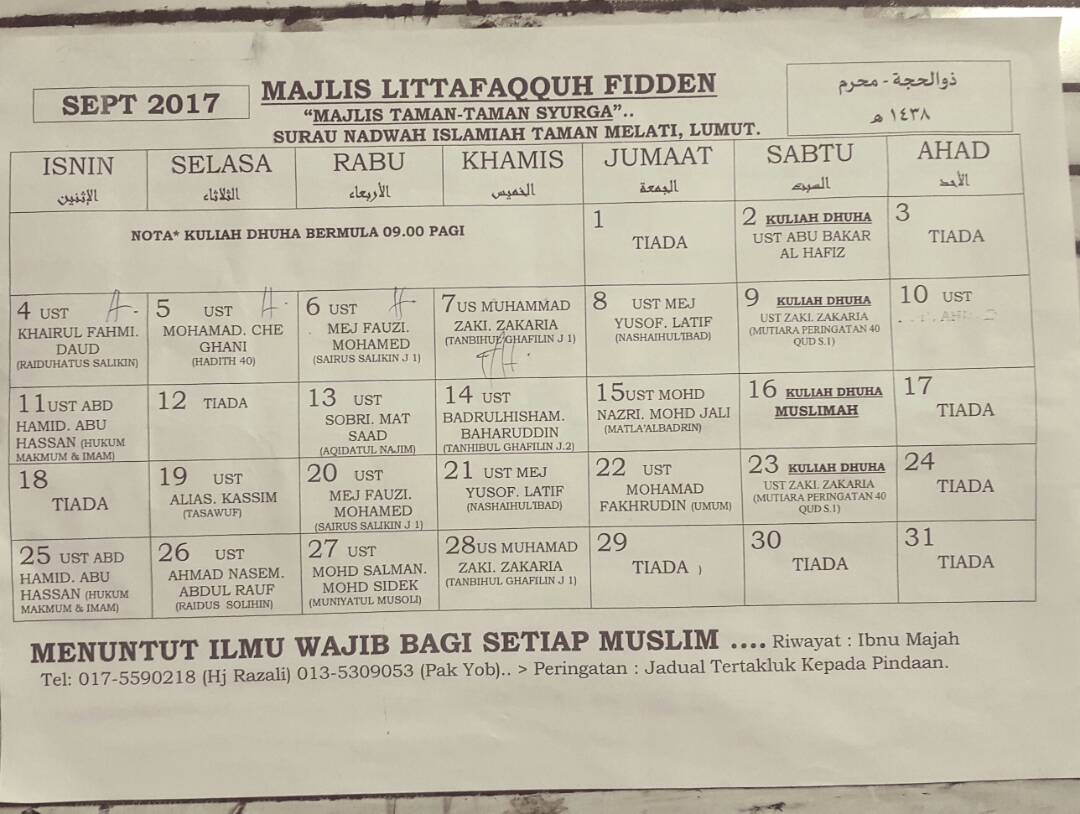 SEPT 2017
MAJLIS LITTAFAQQUH FIDDEN
"MAJLIS TAMAN-TAMAN SYURGA"..
SURAU NADWAH ISLAMIAH TAMAN MELATI, LUMUT.
ذوالحجة - محرم
١٤٣٨ ه
ISNIN SELASA RABU KHAMIS JUMAAT SABTU AHAD
الإثنين الثلاثاء الأربعاء الخميس الجمعة السبت الأحد
NOTA* KULIAH DHUHA BERMULA 09.00 PAGI
1
TIADA
2 KULIAH DHUHA
UST ABU BAKAR
AL HAFIZ
3
TIADA
4 UST
KHAIRUL FAHMI.
DAUD
(RAIDUHATUS SALIKIN)
5 UST
MOHAMAD. CHE
GHANI
(HADITH 40)
6 UST
MEJ FAUZI.
MOHAMED
(SAIRUS SALIKIN J 1)
7US MUHAMMAD
ZAKI. ZAKARIA
(TANBIHUL GHAFILIN J 1)
8 UST MEJ
YUSOF. LATIF
(NASHAIHUL'IBAD)
9 KULIAH DHUHA
UST ZAKI. ZAKARIA
(MUTIARA PERINGATAN 40
QUD S.1)
10 UST
11UST ABD
HAMID. ABU
HASSAN (HUKUM
MAKMUM & IMAM)
12 TIADA
13 UST
SOBRI. MAT
SAAD
(AQIDATUL NAJIM)
14 UST
BADRULHISHAM.
BAHARUDDIN
(TANHIBUL GHAFILIN J.2)
15UST MOHD
NAZRI. MOHD JALI
(MATLA'ALBADRIN)
16 KULIAH DHUHA
MUSLIMAH
17
TIADA
18
TIADA
19 UST
ALIAS. KASSIM
(TASAWUF)
20 UST
MEJ FAUZI.
MOHAMED
(SAIRUS SALIKIN J 1)
21 UST MEJ
YUSOF. LATIF
(NASHAIHUL'IBAD)
22 UST
MOHAMAD
FAKHRUDIN (UMUM)
23 KULIAH DHUHA
UST ZAKI. ZAKARIA
(MUTIARA PERINGATAN 40
QUD S.1)
24
TIADA
25 UST ABD
HAMID. ABU
HASSAN (HUKUM
MAKMUM & IMAM)
26 UST
AHMAD NASEM.
ABDUL RAUF
(RAIDUS SOLIHIN)
27 UST
MOHD SALMAN.
MOHD SIDEK
(MUNIYATUL MUSOLI)
28US MUHAMAD
ZAKI. ZAKARIA
(TANBIHUL GHAFILIN J 1)
29
TIADA
30
TIADA
31
TIADA
MENUNTUT ILMU WAJIB BAGI SETIAP MUSLIM .... Riwayat : Ibnu Majah
Tel: 017-5590218 (Hj Razali) 013-5309053 (Pak Yob).. > Peringatan : Jadual Tertakluk Kepada Pindaan.